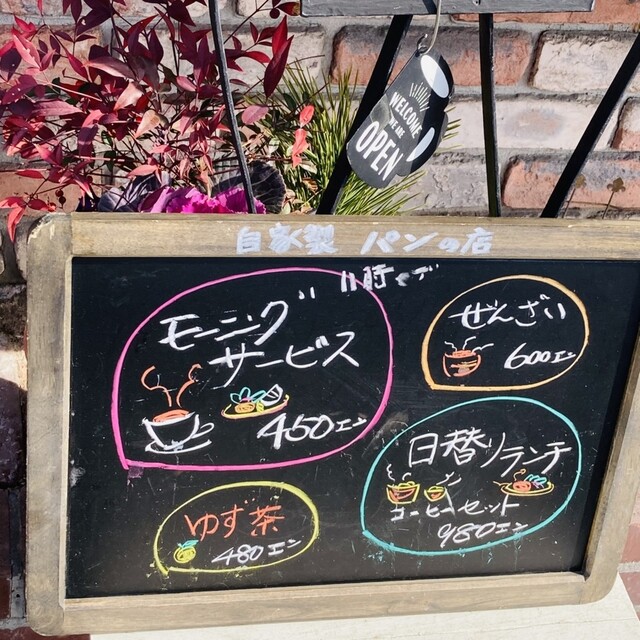 WELCOME
WE ARE
OPEN
自家製 パンの店
11時まで
モーニング
サービス
450エン
ぜんざい
600エン
日替ランチ
コーヒーセット
980エン
ゆず茶
480エン